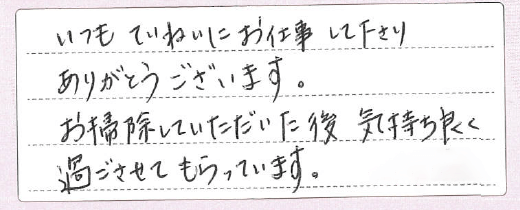 いつも ていねいに お仕事 して下さり
ありがとうございます。
お掃除していただいた後 気持ち良く
過ごさせて もらっています。